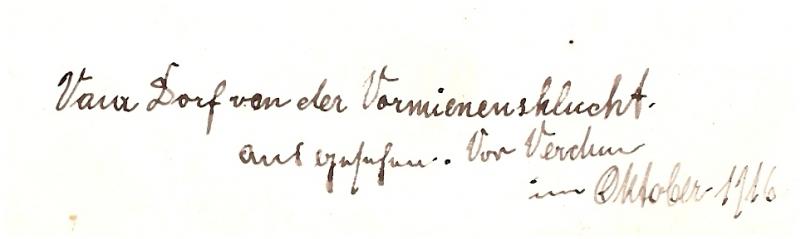 Vaux Dorf von der Vormienenshlucht.
aus gesehen. Vor Verdun
im Oktober 1916